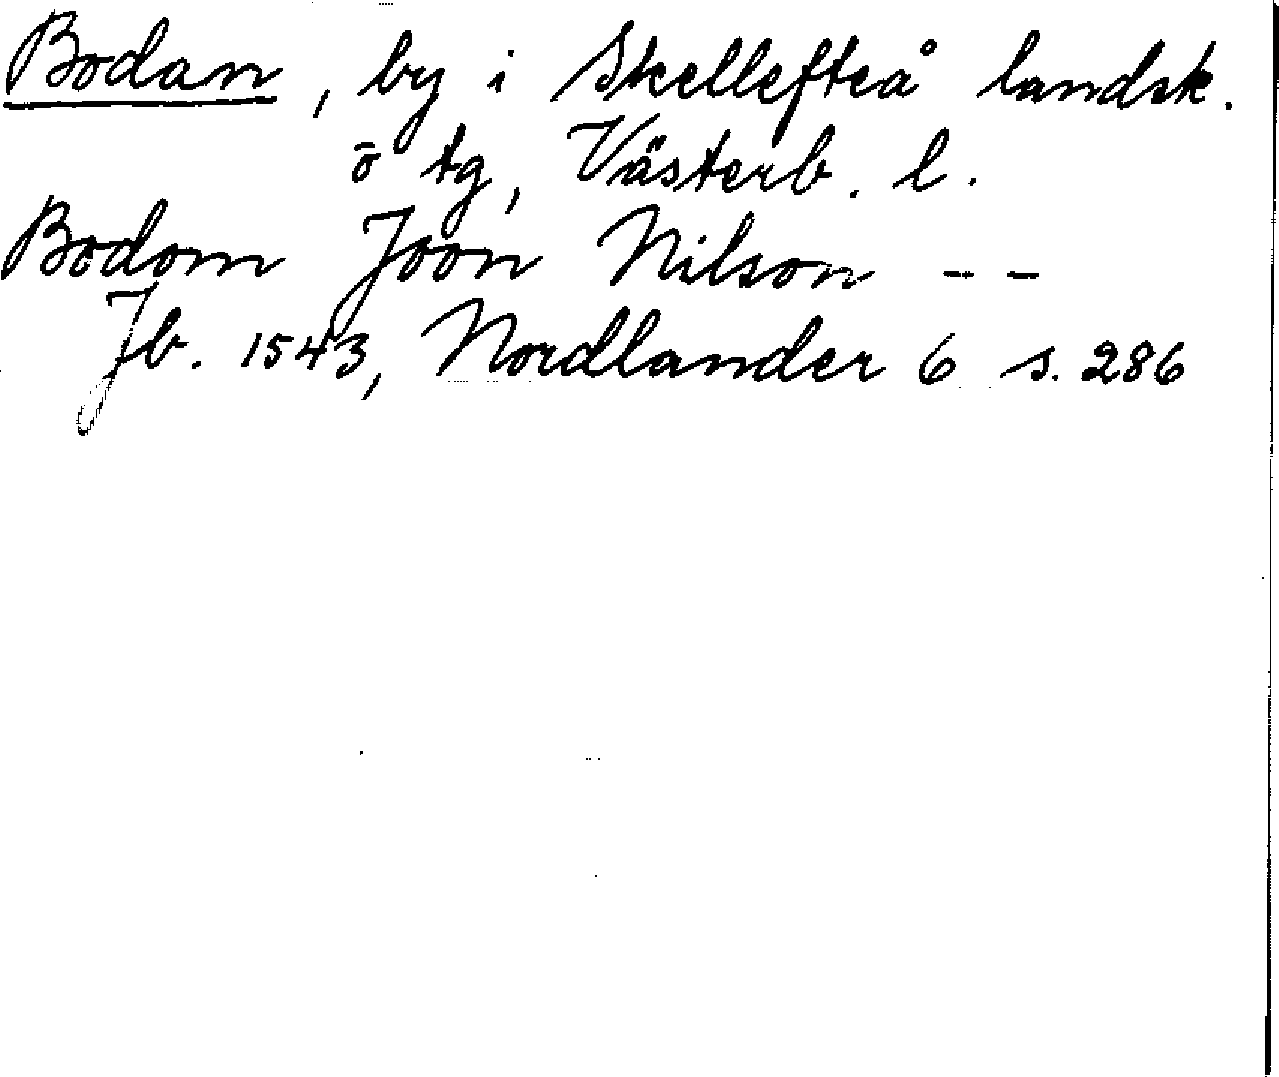 Bodan, by i Skellefteå landsk.
ö tg, Västerb. l.
Bodom Joon Nilson - -
Jb. 1543, Nordlander 6 s. 286